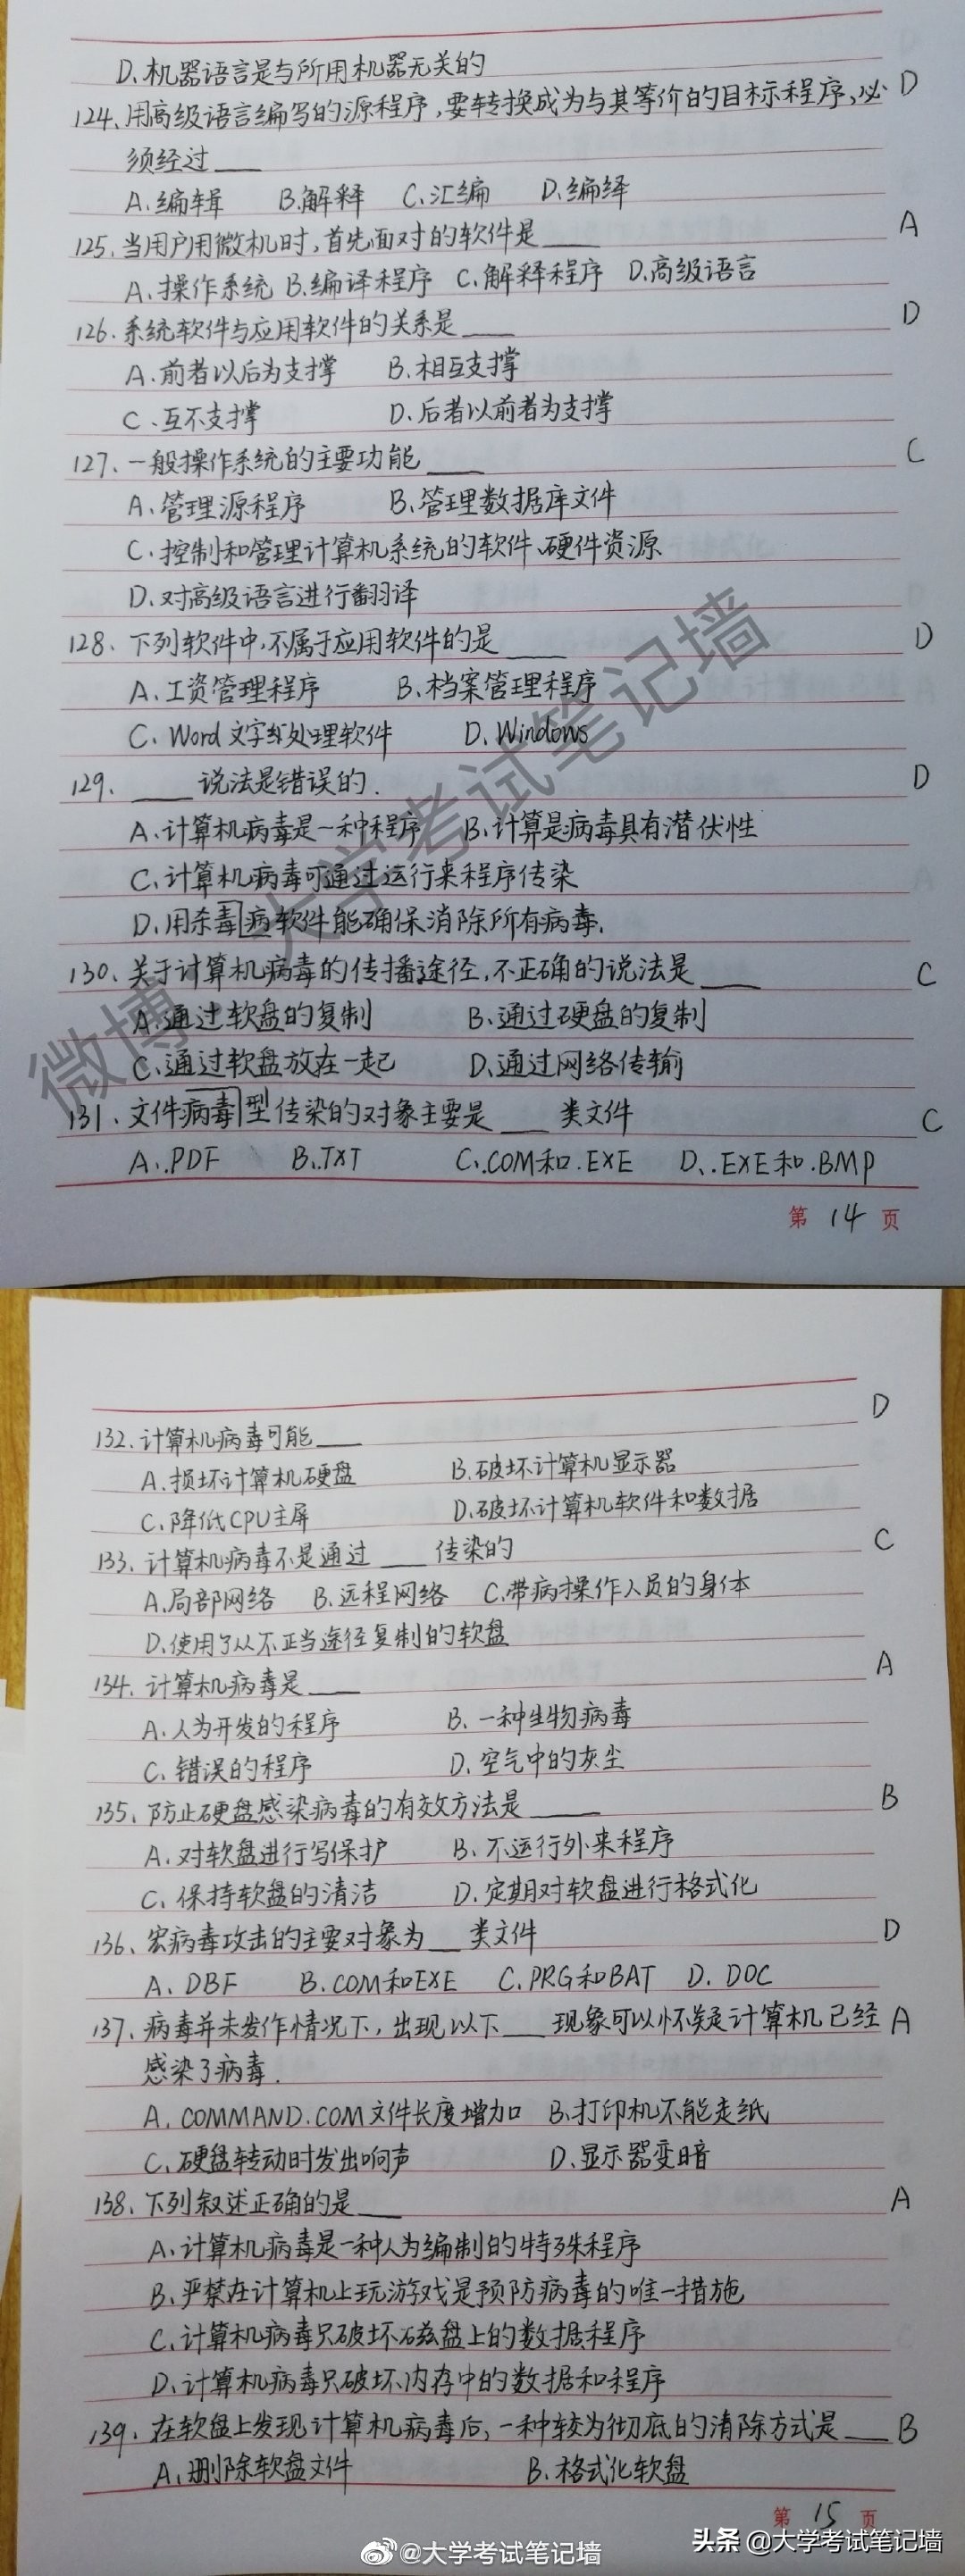 D.机器语言是与所用机器无关的
124、用高级语言编写的源程序,要转换成为与其等价的目标程序,必 D
须经过___
A.编辑 B.解释 C.汇编 D.编绎
125.当用户用微机时,首先面对的软件是____ A
A.操作系统 B.编译程序 C.解释程序 D.高级语言
126.系统软件与应用软件的关系是____ D
A.前者以后为支撑 B.相互支撑
C、互不支撑 D.后者以前者为支撑
127、一般操作系统的主要功能____ C
A.管理源程序 B.管理数据库文件
C.控制和管理计算机系统的软件、硬件资源
D.对高级语言进行翻译
128.下列软件中,不属于应用软件的是____ D
A.工资管理程序 B.档案管理程序
C.Word文字处理软件 D.Windows
129、____说法是错误的. D
A.计算机病毒是一种程序 B.计算是病毒具有潜伏性
C.计算机病毒可通过运行来程序传染
D.用杀毒病软件能确保消除所有病毒.
130、关于计算机病毒的传播途径,不正确的说法是____ C
A.通过软盘的复制 B.通过硬盘的复制
C.通过软盘放在一起 D.通过网络传输
131、文件病毒型传染的对象主要是___类文件 C
A..PDF B..TXT C..COM和.EXE D..EXE和.BMP
第 14 页
微博:大学考试笔记墙
132.计算机病毒可能____ D
A.损坏计算机硬盘 B.破坏计算机显示器
C.降低CPU主屏 D.破坏计算机软件和数据
133、计算机病毒不是通过___传染的 C
A.局部网络 B.远程网络 C.带病操作人员的身体
D.使用了从不正当途径复制的软盘
134.计算机病毒是____ A
A.人为开发的程序 B.一种生物病毒
C.错误的程序 D.空气中的灰尘
135、防止硬盘感染病毒的有效方法是____ B
A.对软盘进行写保护 B.不运行外来程序
C.保持软盘的清洁 D.定期对软盘进行格式化
136、宏病毒攻击的主要对象为__类文件 D
A.DBF B.COM和EXE C.PRG和BAT D.DOC
137.病毒并未发作情况下,出现以下___现象可以怀疑计算机已经 A
感染了病毒.
A.COMMAND.COM文件长度增加 B.打印机不能走纸
C.硬盘转动时发出响声 D.显示器变暗
138.下列叙述正确的是____ A
A.计算机病毒是一种人为编制的特殊程序
B.严禁在计算机上玩游戏是预防病毒的唯一措施
C.计算机病毒只破坏磁盘上的数据程序
D.计算机病毒只破坏内存中的数据和程序
139.在软盘上发现计算机病毒后,一种较为彻底的清除方式是___ B
A.删除软盘文件 B.格式化软盘
第 15 页
@大学考试笔记墙
头条 @大学考试笔记墙